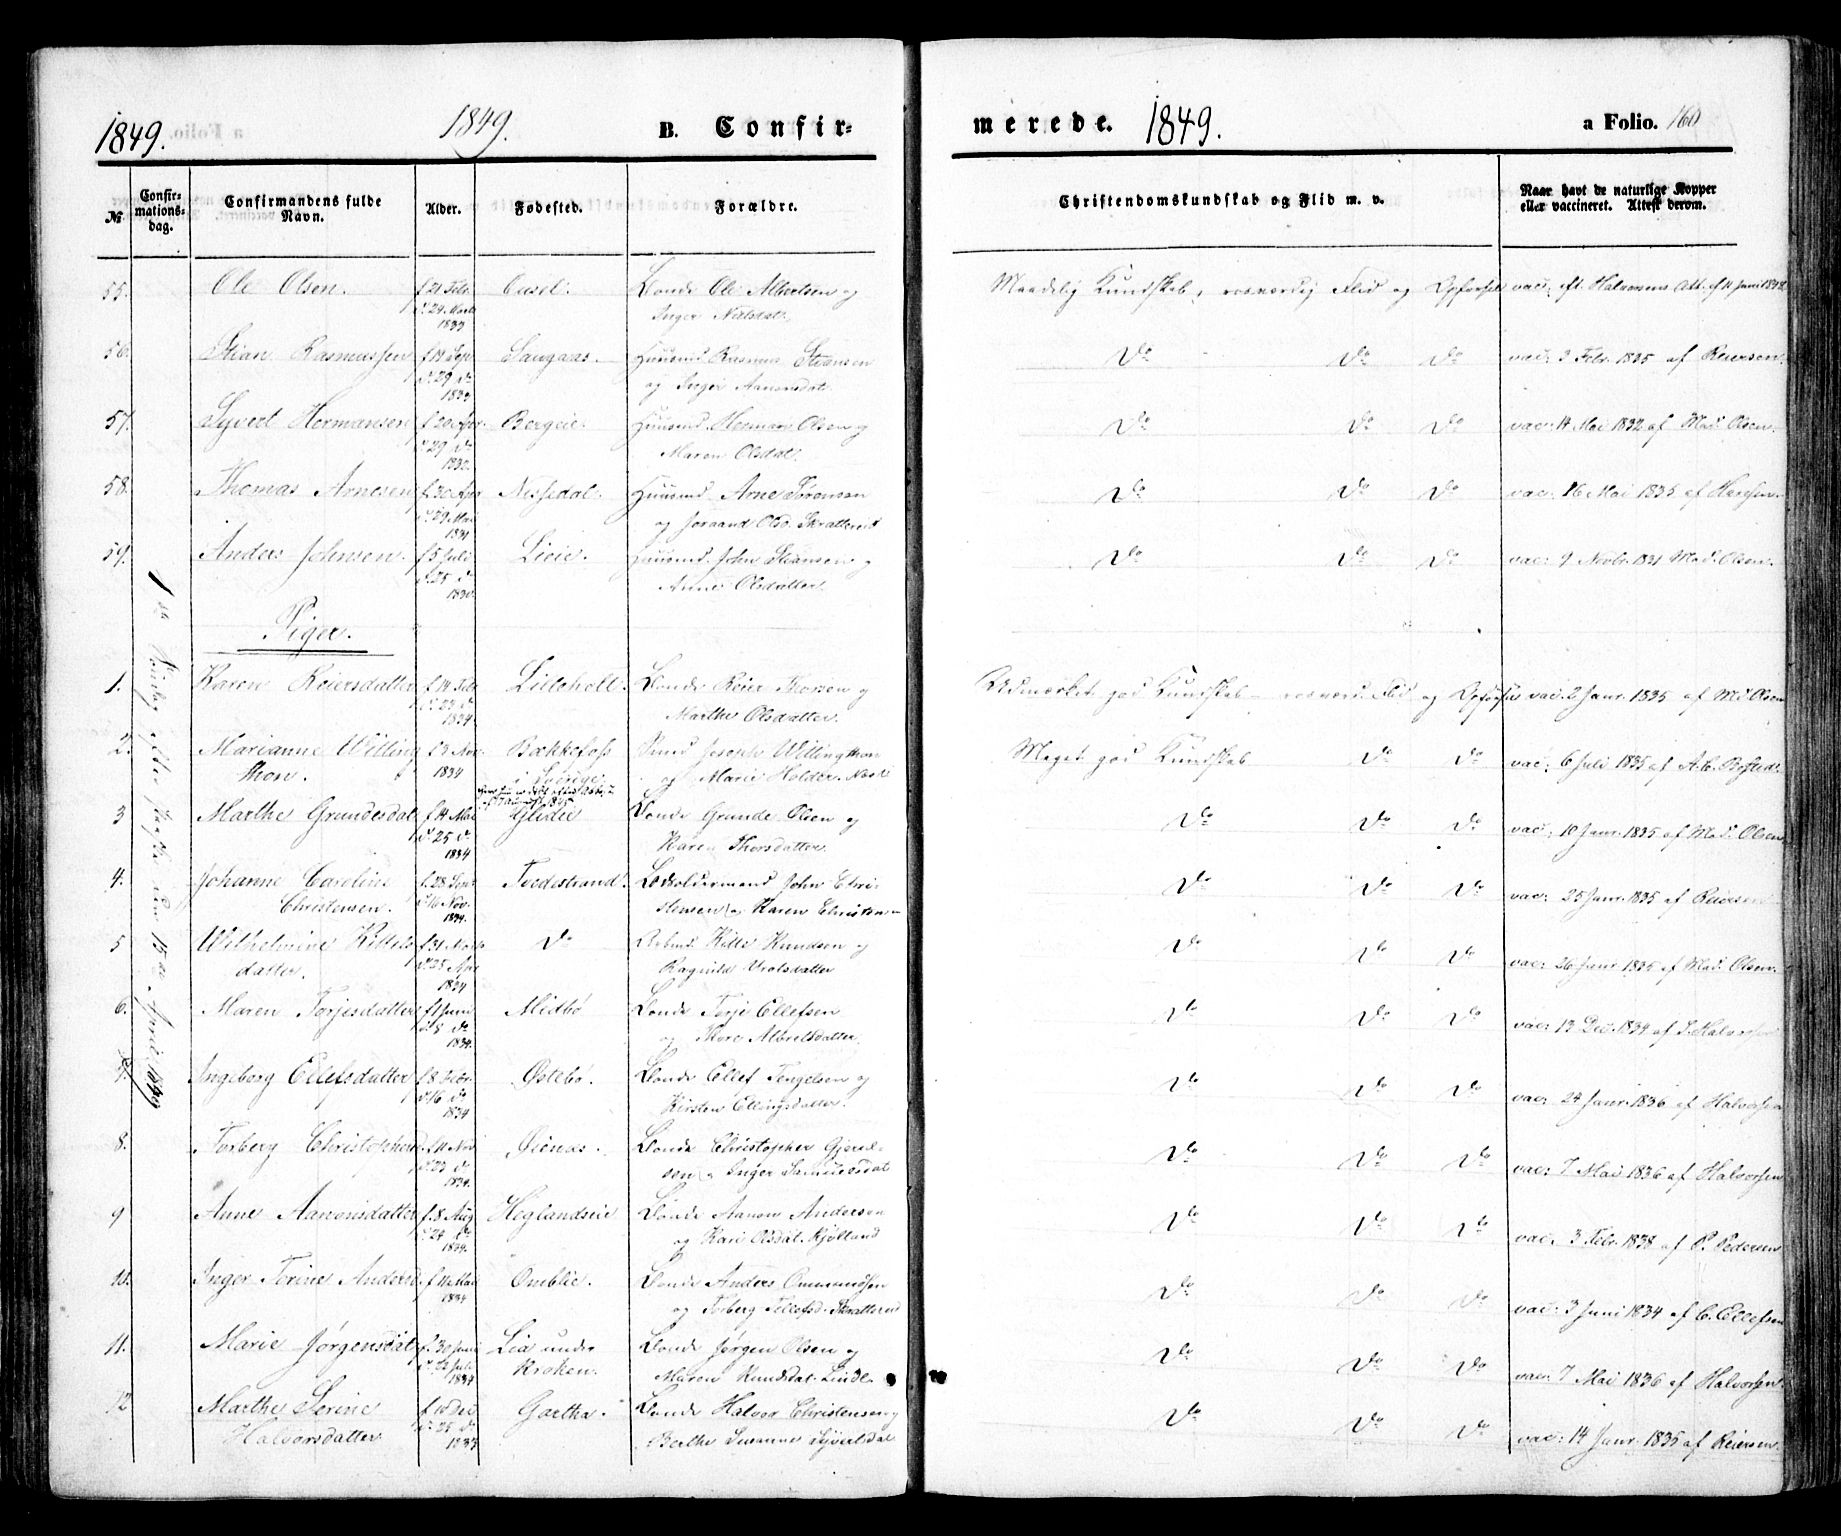 1849.
1849.
B. Confir-
merede.
1849.
a Folio. 160
№
Confir-
mations-
dag.
Confirmandens fulde
Navn.
Alder.
Fødested.
Forældre.
Christendomskundskab og Flid m. v.
Naar havt de naturlige Kopper
eller vaccineret. Attest derom.
1ste Søndag efter Paaske den 15de April 1849
55. Ole Olsen. f 21 Febr. Bonde Ole Albretsen og Maadelig Kundskab, rosværdig Flid og Opførsel vac: eft. Halvorsens Att. af 11 Juni 1848.
d: 24 Marts Inger Nielsdat:
1833
56. Stian Rasmussen f 19 Sep. Saugaas. Huusmd Rasmus Stiansen Do Do Do vac: 3 Febr. 1835 af Reiersen.
d: 29 do og Inger Aanonsdat.
1833
57. Syvert Hermansen f 20 Apr. Bergeie. Huusmd. Herman Olsen og Do Do Do vac: 14 Mai 1832 af Mad. Olsen.
d: 29 do Maren Olsdat.
1832.
58. Thomas Arnesen f. 30 Apr Nissedal. Huusmd Arne Sørensen Do Do Do vac: 16 Mai 1835 af
d: 29 Mai og Joraand Olsd. Skrattereid
1831
59. Anders Johnsen. f 5 Juli Lieie. Huusmd. John Stiansen og Do Do Do vac: 9 Novbr. 1831 Mad. Olsen.
d. 25 do Anne Olsdatter.
1830.
Piger.
1. Karen Reiersdatter f 14 Febr Lilleholt. Bonde Reier Thorsen og Udmærket god Kundskab rosværd. Flid og Opførsel vac: 2 Janr. 1835 af Md. Olsen
d: 23 do Marthe Olsdatter.
1834
2. Marianne Willing f 3 Nov. Bækkefoss Joseph Willingthon Meget god Kundskab Do Do vac: 6 Juli 1835 af A. C. Bosted.
thon. 1834 i Sverige. og Marie Holder
3 Marthe Grundesdat f 14 Mai Glidie Bonde Grunde Olsen og Do Do Do vac: 10 Janr. 1835 af Mad. Olsen
d: 25 do Karen Thorsdatter.
1834
4. Johanne Caroline f. 28 Sep. Tvedestrand. John Chri- Do Do Do vac: 25 Janr. 1835 af Reiersen
Christensen. d: 16 Nov. stensen og Karen Christen-
1834.
5 Wilhelmine Kittels f. 31 Marts Do Kittel Knudsen og Do Do Do vac: 26 Janr. 1835 af Mad. Olsen.
datter. d: 25 Apr Ragnild Vralsdatter
1834
6. Maren Torjesdatter f 1 Juni Midbø Bonde Torje Ellefsen Do Do Do vac: 13 Dec. 1834 af S. Halvorsen
d: 8 do og Thore Albretsdatter.
1834.
7. Ingeborg Ellefsdatter f 8 Febr. Østebø. Bonde Ellef Tengelsen og Do Do Do vac: 24 Janr. 1836 af Halvorsen
d: 16 do Kirsten Ellingsdatter.
1834
8. Torberg Christophersd f. 11 Nov Øienæs. Bonde Christopher Gjerul- Do Do Do vac: 7 Mai 1836 af Halvorsen
d: 23 do sen og Inger Samuelsdat
1834.
9 Anne Aanonsdatter f. 8 Aug Høglandseie Bonde Aanon Andersen Do Do Do vac. 3 Febr. 1838 af P. Pedersen
d: 24 do og Kari Olsdat. Kjølland
1834.
10. Inger Terine Andersd. 1834 Omblie. Bonde Anders Ommundsen Do Do Do vac: 3 Juni 1834 af C. Ellefsen
og Torberg Tellefsd. Skrattereid
11. Marie Jørgensdat f. 30 Juni Lia under Bonde Jørgen Olsen og Do Do Do vac: 7 Mai 1836 af Halvorsen.
d: 22 Juli Kroken. Maren Knudsdat. Lindl.
1834
12 Marthe Serine f 10 Dec Gartha. Bonde Halvor Christensen og Do Do Do vac: 14 Janr. 1835 af Reiersen.
Halvorsdatter d: 25 do Berthe Susanne Syvertsdat
1833